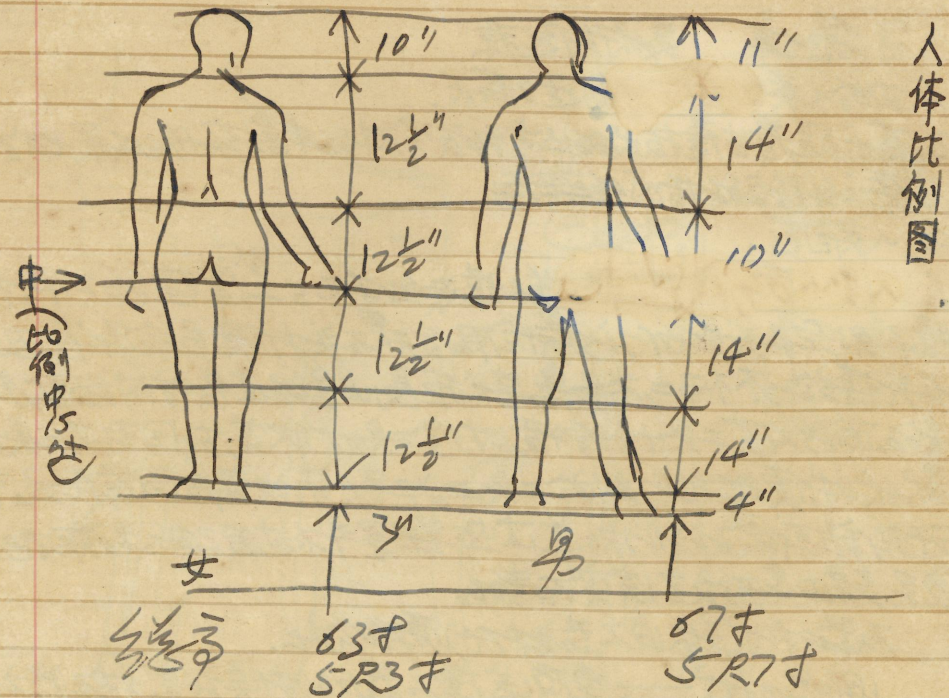 人体比例图
10"
12½"
12½"
12½"
12½"
3"
11"
14"
10"
14"
14"
4"
中
(比例中心处)
女
男
总高
63才
5尺3才
67才
5尺7才